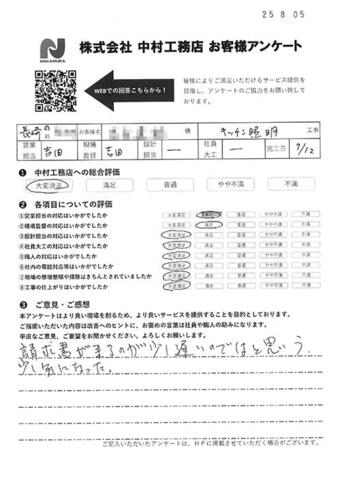 25 8.05
N
NAKAMURA
株式会社 中村工務店 お客様アンケート
WEBでの回答こちらから!
皆様によりご満足いただけるサービス提供を
目指し、アンケートのご協力をお願い致して
おります。
長崎の お客様名 様 キッチン照明 工事
営業担当 吉田 現場監督 吉田 設計担当 ー 社員大工 ー 完工日 7/12
❶ 中村工務店への総合評価
大変満足 満足 普通 やや不満 不満
❷ 各項目についての評価
①営業担当の対応はいかがでしたか 大変満足 満足 普通 やや不満 不満
②現場監督の対応はいかがでしたか 大変満足 満足 普通 やや不満 不満
③設計担当の対応はいかがでしたか 大変満足 満足 普通 やや不満 不満
④社員大工の対応はいかがでしたか 大変満足 満足 普通 やや不満 不満
⑤職人の対応はいかがでしたか 大変満足 満足 普通 やや不満 不満
⑥社内の電話対応等はいかがでしたか 大変満足 満足 普通 やや不満 不満
⑦現場の整理整頓や掃除はきちんとされていましたか 大変満足 満足 普通 やや不満 不満
⑧工事の仕上がりはいかがでしたか 大変満足 満足 普通 やや不満 不満
❸ ご意見・ご感想
本アンケートはより良い現場を創るため、より良いサービスを提供することを目的としております。
ご指摘いただいた内容は改善へのヒントに、お褒めの言葉は社員や職人の励みになります。
率直なご意見、ご要望をお聞かせください。よろしくお願いします。
請求書が来るのが少し遅いのではと思う
少し気になった。
ご記入いただいたアンケートは、HPに掲載させていただく場合がございます。